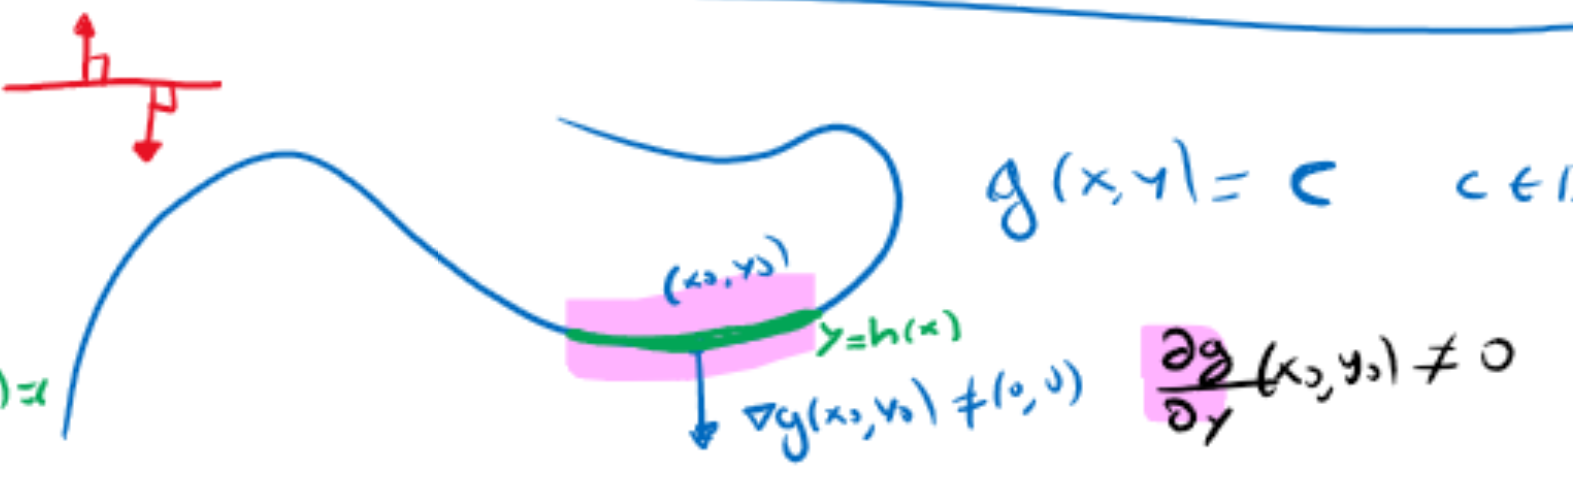 g(x,y) = c c ∈
(x₀,y₀)
y=h(x)
∂g/∂y (x₀,y₀) ≠ 0
∇g(x₀,y₀) ≠ (0,0)